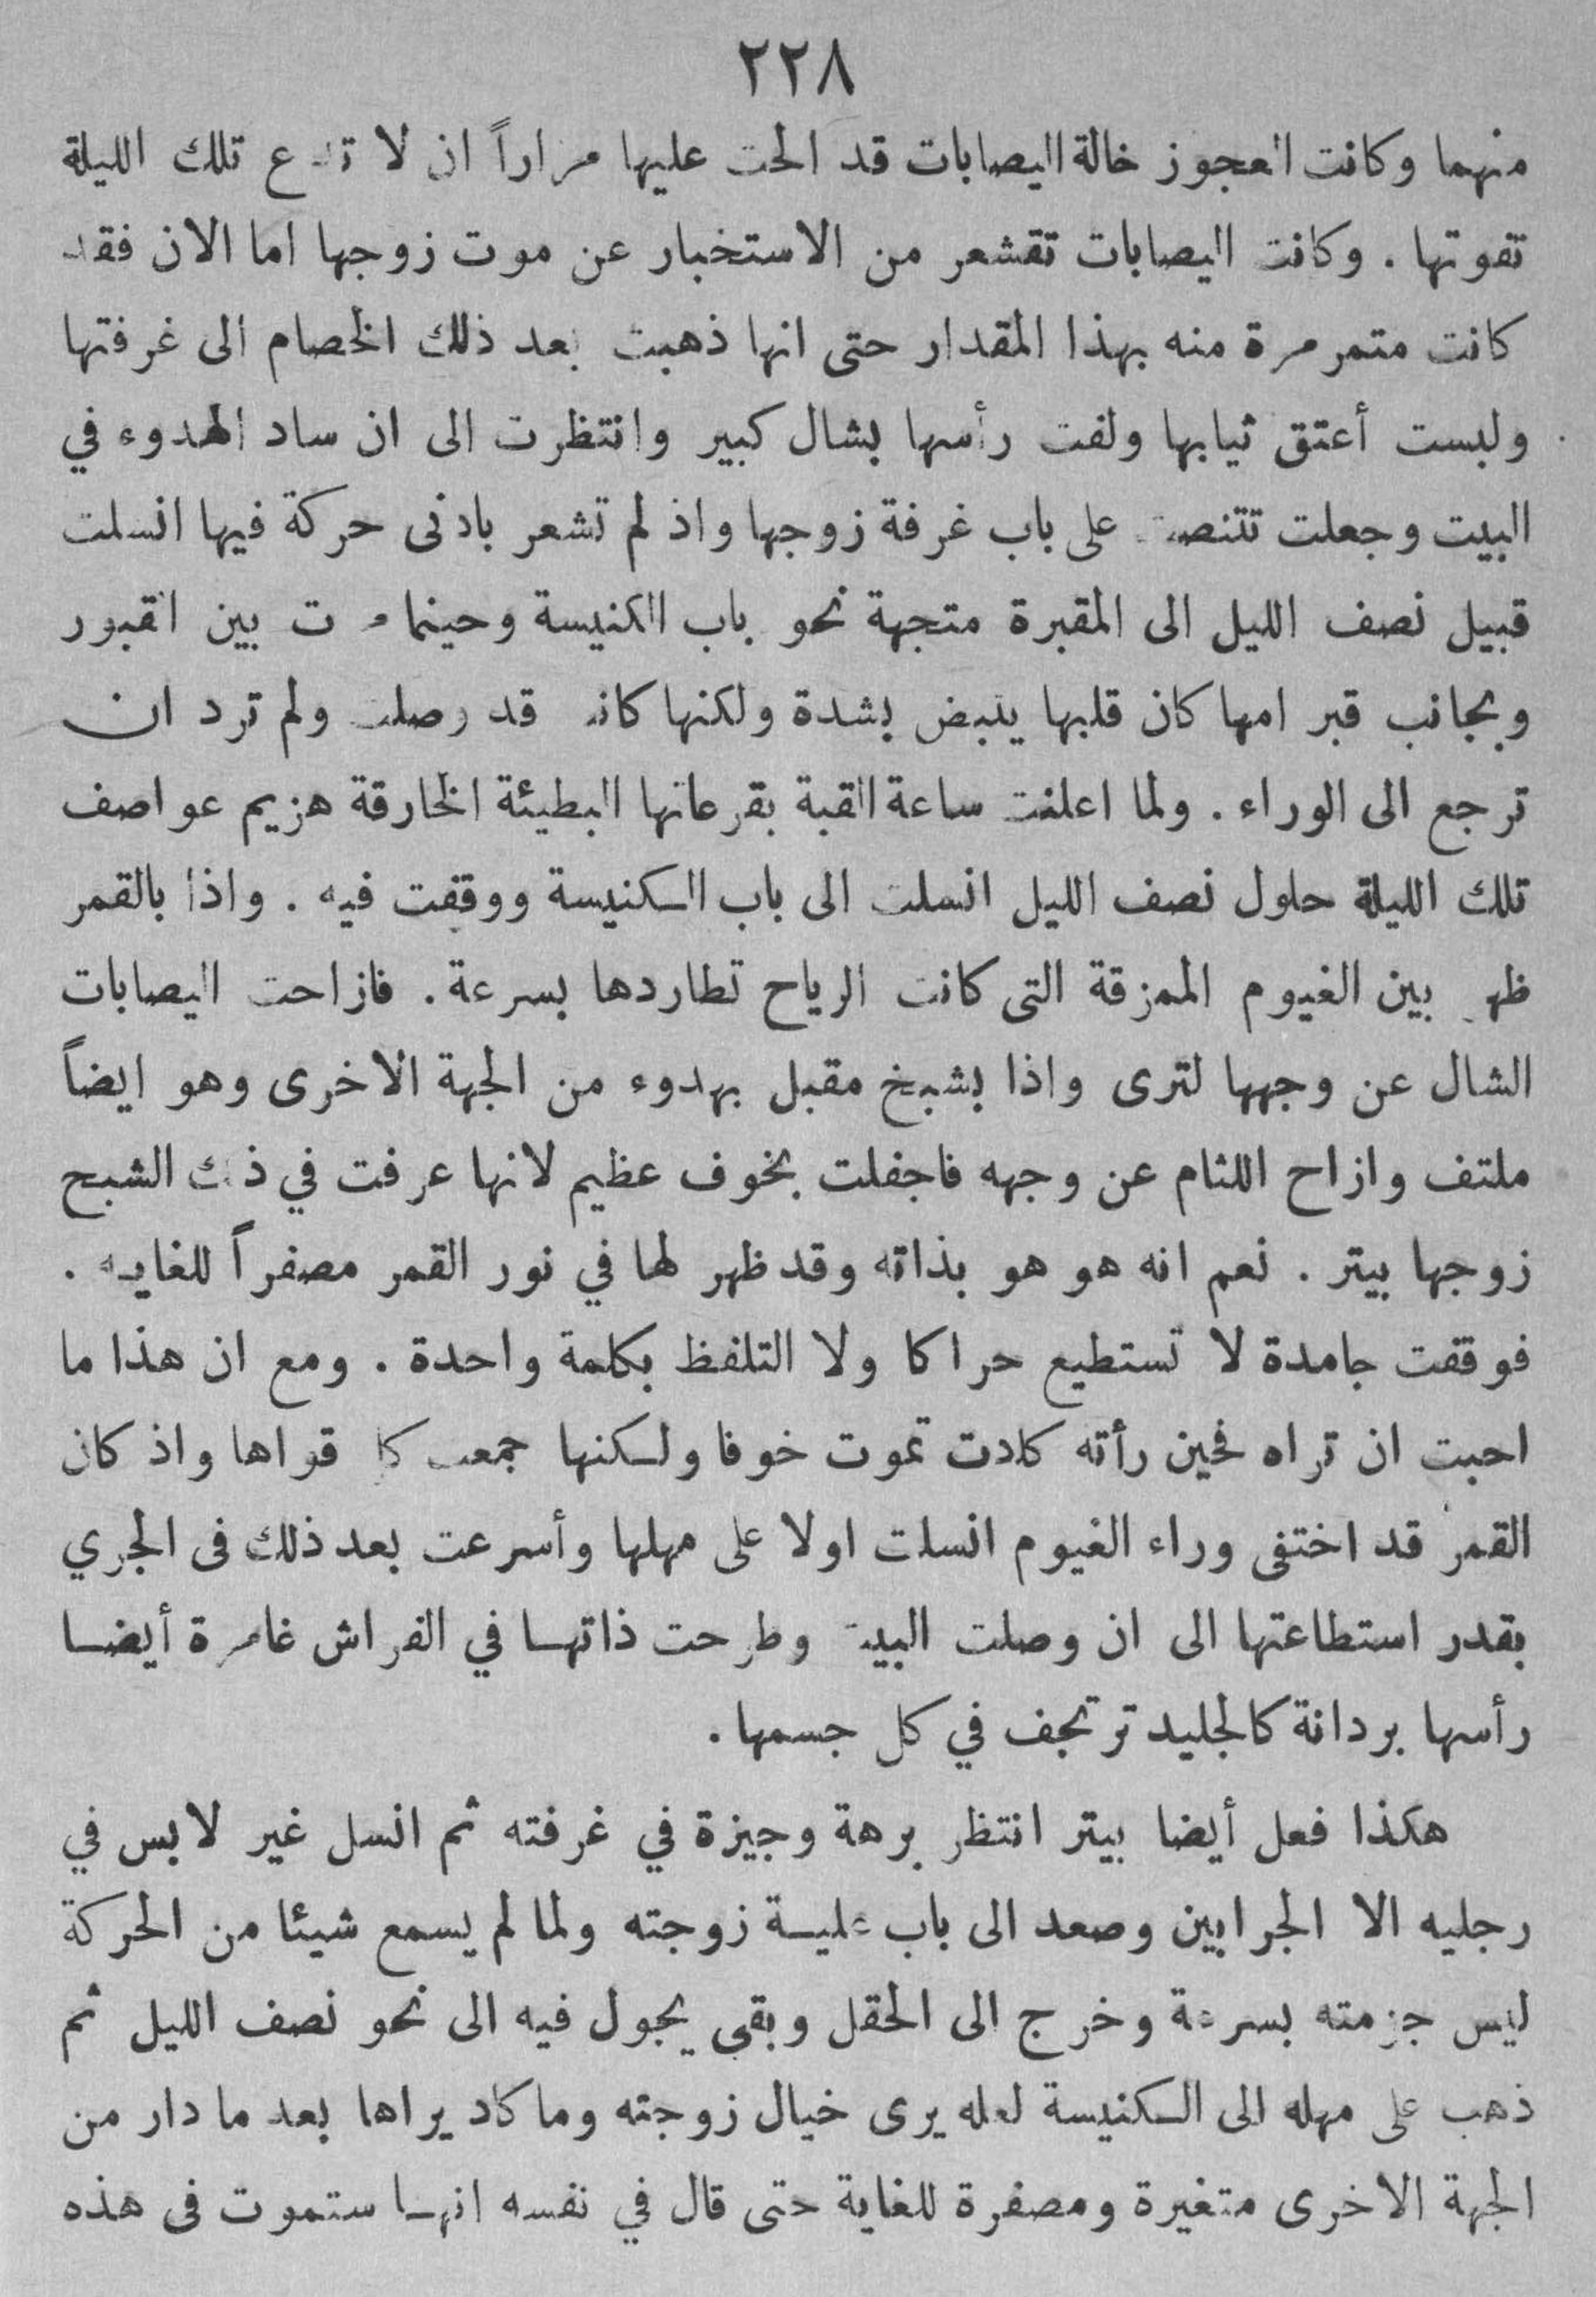 ٢٢٨
منهما وكانت العجوز خالة اليصابات قد الحت عليها مراراً ان لا تدع تلك الليلة
تفوتها . وكانت اليصابات تقشعر من الاستخبار عن موت زوجها اما الان فقد
كانت متمرمرة منه بهذا المقدار حتى انها ذهبت بعد ذلك الخصام الى غرفتها
ولبست أعتق ثيابها ولفت رأسها بشال كبير وانتظرت الى ان ساد الهدوء في
البيت وجعلت تتنصت على باب غرفة زوجها واذ لم تشعر بادنى حركة فيها انسلت
قبيل نصف الليل الى المقبرة متجهة نحو باب الكنيسة وحينما مرت بين القبور
وبجانب قبر امها كان قلبها ينبض بشدة ولكنها كانت قد وصلت ولم ترد ان
ترجع الى الوراء . ولما اعلنت ساعة القبة بقرعاتها البطيئة الخارقة هزيم عواصف
تلك الليلة حلول نصف الليل انسلت الى باب الكنيسة ووقفت فيه . واذا بالقمر
ظهر بين الغيوم الممزقة التى كانت الرياح تطاردها بسرعة . فازاحت اليصابات
الشال عن وجهها لترى واذا بشبخ مقبل بهدوء من الجهة الاخرى وهو ايضاً
ملتف وازاح اللثام عن وجهه فاجفلت بخوف عظيم لانها عرفت في ذلك الشبح
زوجها بيتر . نعم انه هو هو بذاته وقد ظهر لها في نور القمر مصفراً للغاية .
فوقفت جامدة لا تستطيع حراكا ولا التلفظ بكلمة واحدة . ومع ان هذا ما
احبت ان تراه فحين رأته كادت تموت خوفا ولكنها جمعت كل قواها واذ كان
القمر قد اختفى وراء الغيوم انسلت اولا على مهلها وأسرعت بعد ذلك فى الجري
بقدر استطاعتها الى ان وصلت البيت وطرحت ذاتها في الفراش غامرة أيضا
رأسها بردانة كالجليد ترتجف في كل جسمها .
هكذا فعل أيضا بيتر انتظر برهة وجيزة في غرفته ثم انسل غير لابس في
رجليه الا الجرابين وصعد الى باب علية زوجته ولما لم يسمع شيئا من الحركة
لبس جزمته بسرعة وخرج الى الحقل وبقى يجول فيه الى نحو نصف الليل ثم
ذهب على مهله الى الكنيسة لعله يرى خيال زوجته وما كاد يراها بعد ما دار من
الجهة الاخرى متغيرة ومصفرة للغاية حتى قال في نفسه انها ستموت فى هذه